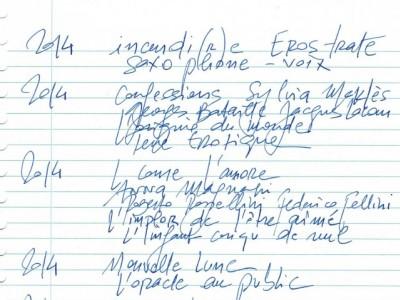 2014 incendi(r)e Erostrate
saxophone - voix
2014 Confessions Sylvia Maklès
Georges Bataille Jacques Lacan
L'origine du monde
Terre Erotique
2014 L come l'amore
Anna Magnani
Roberto Rossellini Federico Fellini
L'implora de l'être aimé
L'infant conçu de nuit
2014 Nouvelle Lune
L'oracle au public